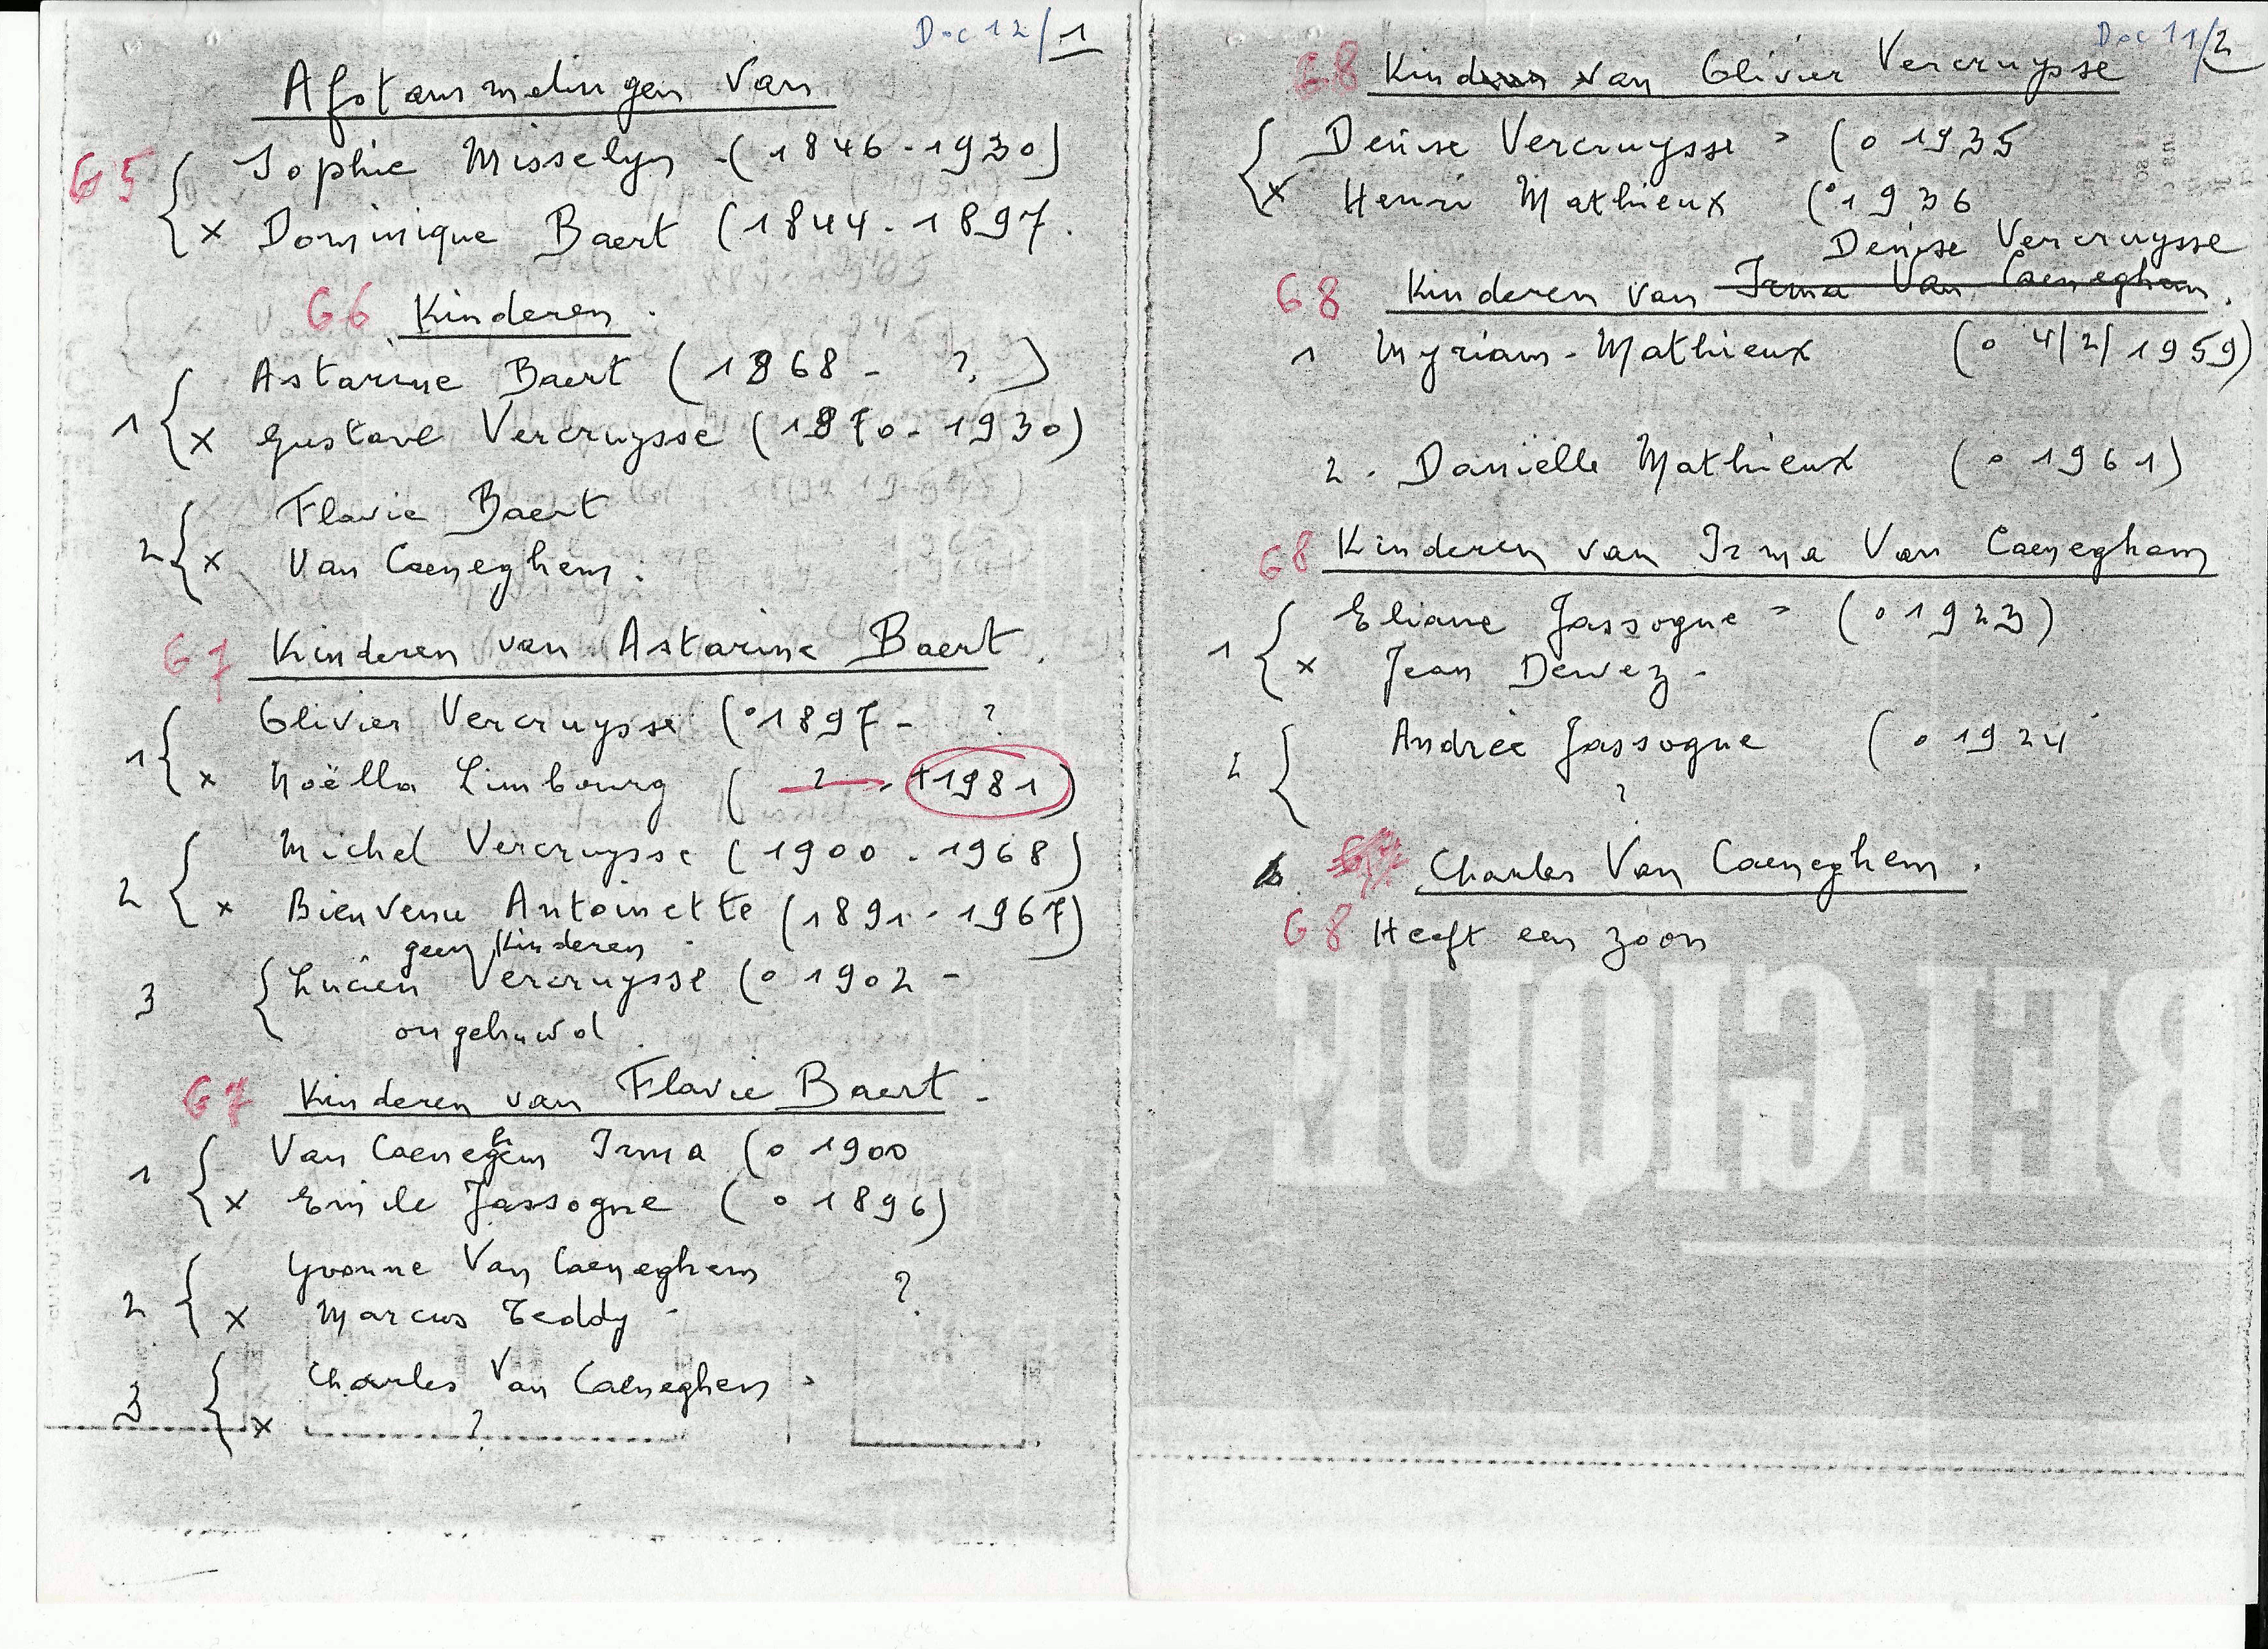 Doc 12/1
Afstammelingen van
G5 Sophie Misselyn (1846-1930)
x Dominique Baert (1844-1897.
G6 Kinderen.
Astarine Baert (1868 - ?)
1 x Gustave Vercruysse (1870-1930)
Flavie Baert
2 x Van Caeneghem.
G7 Kinderen van Astarine Baert.
Olivier Vercruysse (°1897 - ?
1 x Noëlla Limbourg ( ? - +1981)
Michel Vercruysse (1900-1968)
2 x Bienvenu Antoinette (1891-1967)
geen kinderen -
3 Lucien Vercruysse (° 1902 -
ongehuwd.
G7 Kinderen van Flavie Baert -
Van Caeneghem Irma (° 1900
1 x Emile Jassogne (° 1896)
Yvonne Van Caeneghem ?
2 x Marcus Teddy -
Charles Van Caeneghem
3 x ?
Doc 11/2
G8 Kind van Olivier Vercruysse
Denise Vercruysse (° 1935
x Henri Mathieux (°1936
Denise Vercruysse
G8 Kinderen van Irma Van Caeneghem.
1 Myriam - Mathieux (° 4/2/1959)
2. Danïelle Mathieux (° 1961)
G8 Kinderen van Irma Van Caeneghem
Eliane Jassogne = (° 1923)
1 x Jean Dewez -
2 Andrée Jassogne (° 1924
?
Charles Van Caeneghem.
G8 Heeft een zoon
BELGIQUE